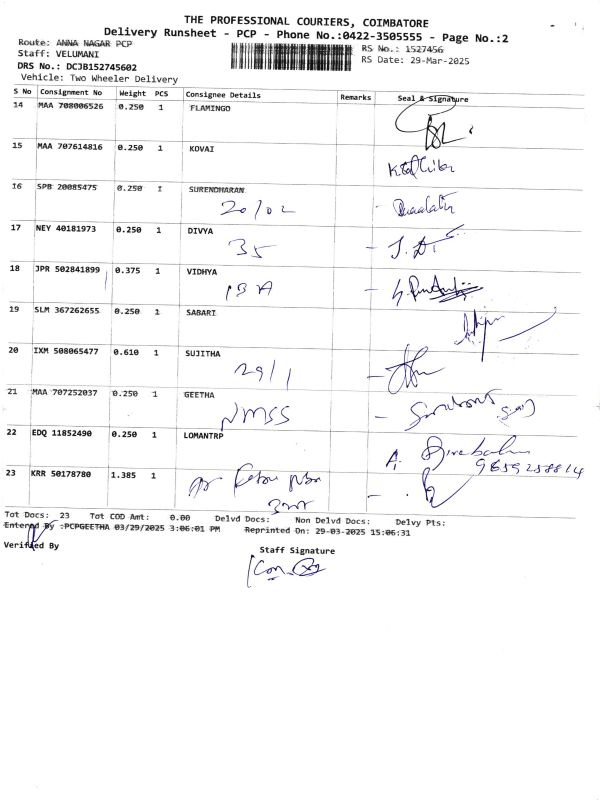 THE PROFESSIONAL COURIERS, COIMBATORE
Delivery Runsheet - PCP - Phone No.:0422-3505555 - Page No.:2
Route: ANNA NAGAR PCP
Staff: VELUMANI
DRS No.: DCJB152745602
Vehicle: Two Wheeler Delivery
RS No.: 1527456
RS Date: 29-Mar-2025
S No Consignment No Weight PCS Consignee Details Remarks Seal & Signature
14 MAA 708006526 0.250 1 FLAMINGO
15 MAA 707614816 0.250 1 KOVAI
16 SPB 20085475 0.250 1 SURENDHARAN
20/02
17 NEY 40181973 0.250 1 DIVYA
35
18 JPR 502841899 0.375 1 VIDHYA
19 SLM 367262655 0.250 1 SABARI
20 IXM 508065477 0.610 1 SUJITHA
29/1
21 MAA 707252037 0.250 1 GEETHA
NMSS
22 EDQ 11852490 0.250 1 LOMANTRP
9659258814
23 KRR 50178780 1.385 1
Tot Docs: 23 Tot COD Amt: 0.00 Delvd Docs: Non Delvd Docs: Delvy Pts:
Entered By :PCPGEETHA 03/29/2025 3:06:01 PM Reprinted On: 29-03-2025 15:06:31
Verified By
Staff Signature